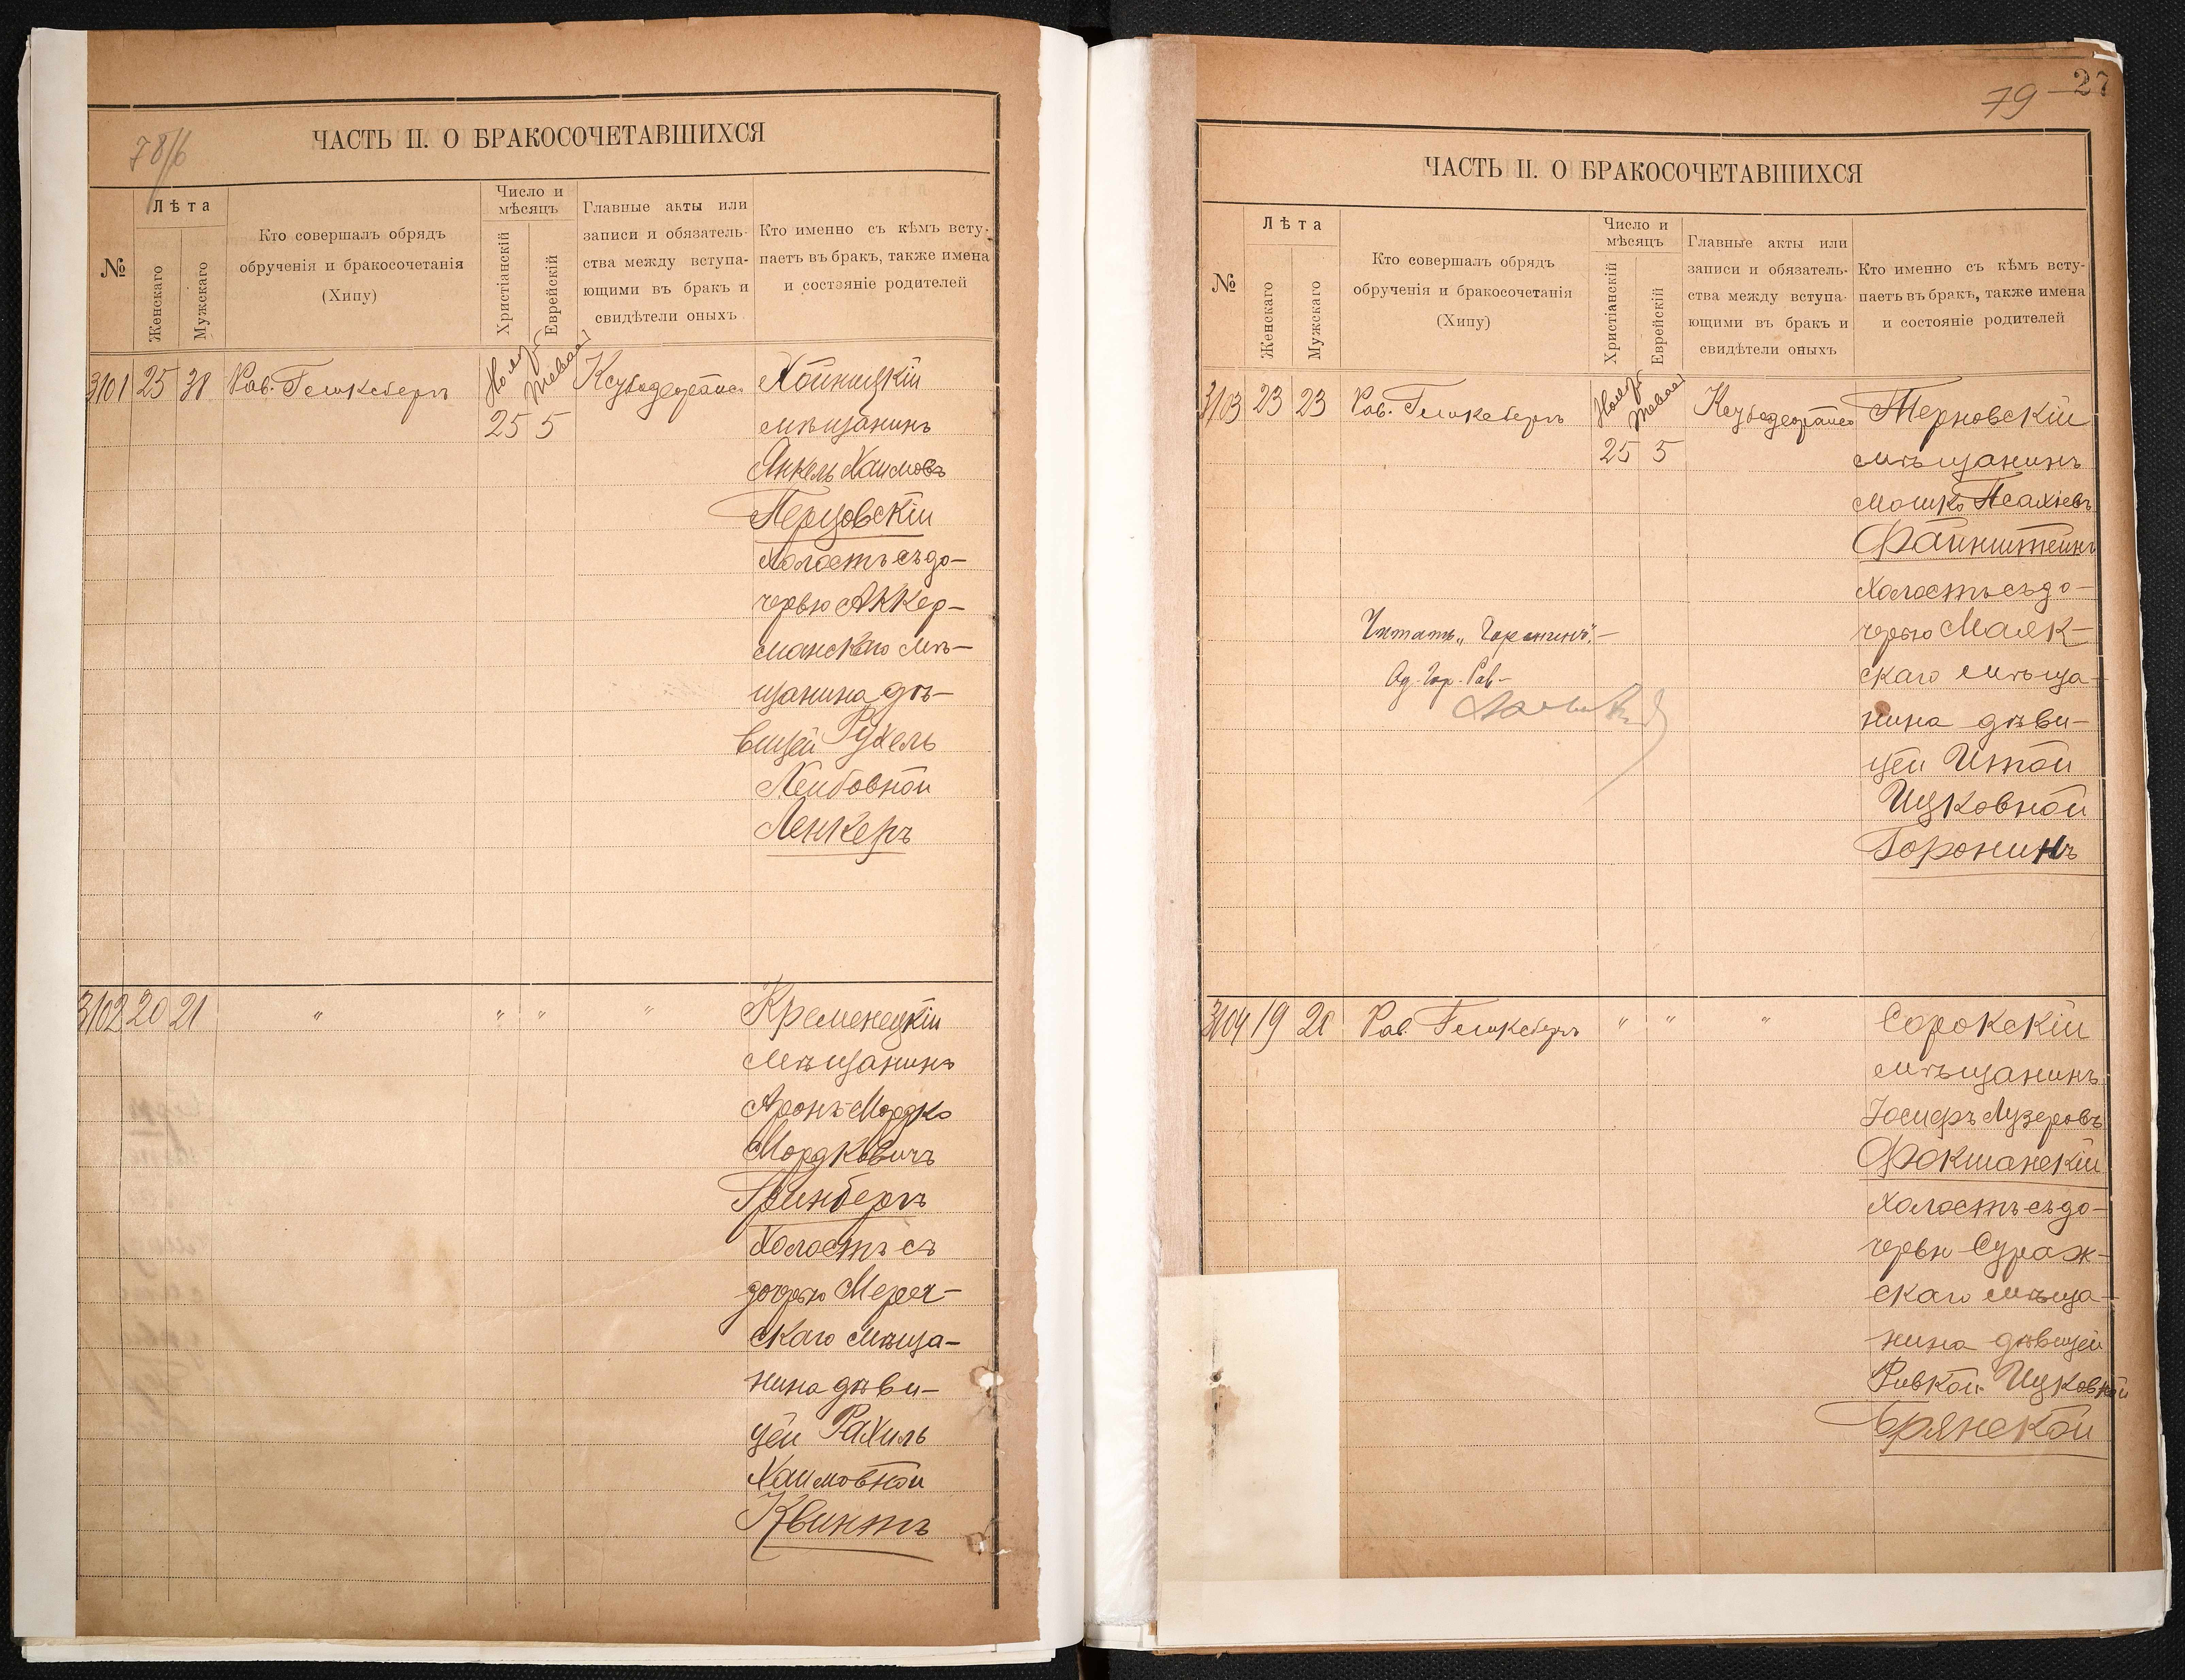 78/б
ЧАСТЬ II. О БРАКОСОЧЕТАВШИХСЯ
№
Лѣта
Женскаго
Мужскаго
Кто совершалъ обрядъ
обрученія и бракосочетанія
(Хипу)
Число и
мѣсяцъ
Христіанскій
Еврейскій
Главные акты или
записи и обязатель-
ства между вступа-
ющими въ бракъ и
свидѣтели оныхъ
Кто именно съ кѣмъ всту-
паетъ въ бракъ, также имена
и состояніе родителей
3101 25 38 Рав. Гешкебергъ Нояб. Тевае
25 5
Хойницкій
мѣщанинъ
Янкель Хаимовъ
Перцовскій
холостъ съ до-
черью Аккер-
манскаго мѣ-
щанина дѣ-
вицей Рухель
Лейбовной
Ленкеръ
3102 20 21 " " " "
Кременецкій
мѣщанинъ
Аронъ-Мордко
Мордковичъ
Гринбергъ
холостъ съ
дочерью Мереч-
скаго мѣща-
нина дѣви-
цей Рахиль
Хаимовной
Квинтъ
79 27
ЧАСТЬ II. О БРАКОСОЧЕТАВШИХСЯ
№
Лѣта
Женскаго
Мужскаго
Кто совершалъ обрядъ
обрученія и бракосочетанія
(Хипу)
Число и
мѣсяцъ
Христіанскій
Еврейскій
Главные акты или
записи и обязатель-
ства между вступа-
ющими въ бракъ и
свидѣтели оныхъ
Кто именно съ кѣмъ всту-
паетъ въ бракъ, также имена
и состояніе родителей
3103 23 23 Рав. Гешкебергъ Нояб. Тевае
25 5
Терновскій
мѣщанинъ
Мошко Псахіевъ
Файнштейнъ
холостъ съ до-
черью Маяк-
скаго мѣща-
нина дѣви-
цей Итой
Ицковной
Горонинъ
Читать "Горонинъ".-
Од. Гор. Рав-
3104 19 20 Рав. Гешкебергъ " " "
Сорокскій
мѣщанинъ
Іосифъ Лузеровъ
Фокшанскій
холостъ съ до-
черью Сураж-
скаго мѣща-
нина дѣвицей
Ривкой Ицковной
Брянской